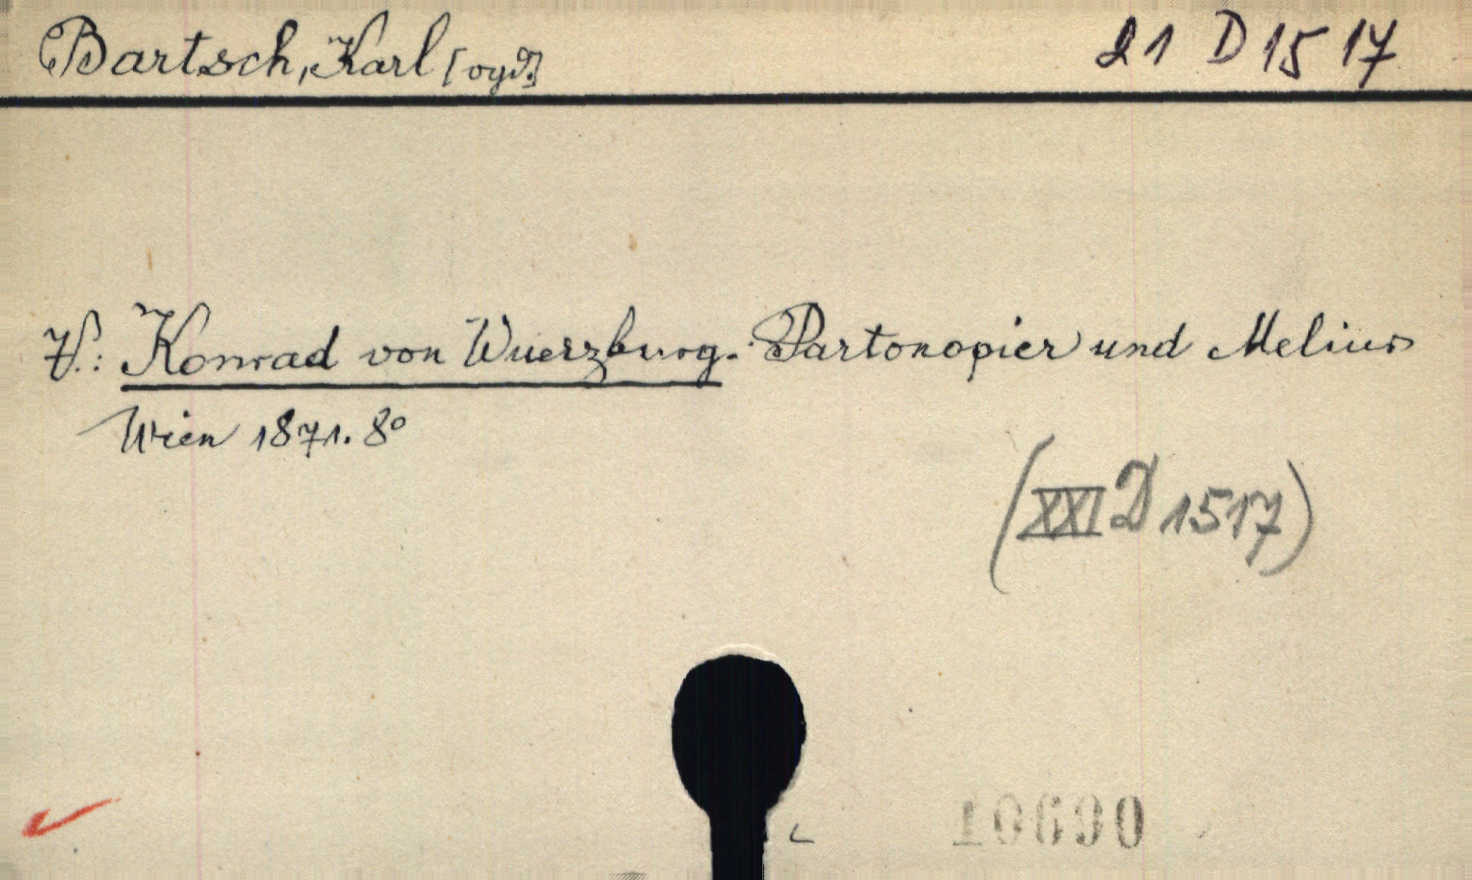 Bartsch, Karl [vyd.] 21 D 1517
V.: Konrad von Wuerzburg. Partonopier und Meliur
Wien 1871. 8°
(XXI D 1517)